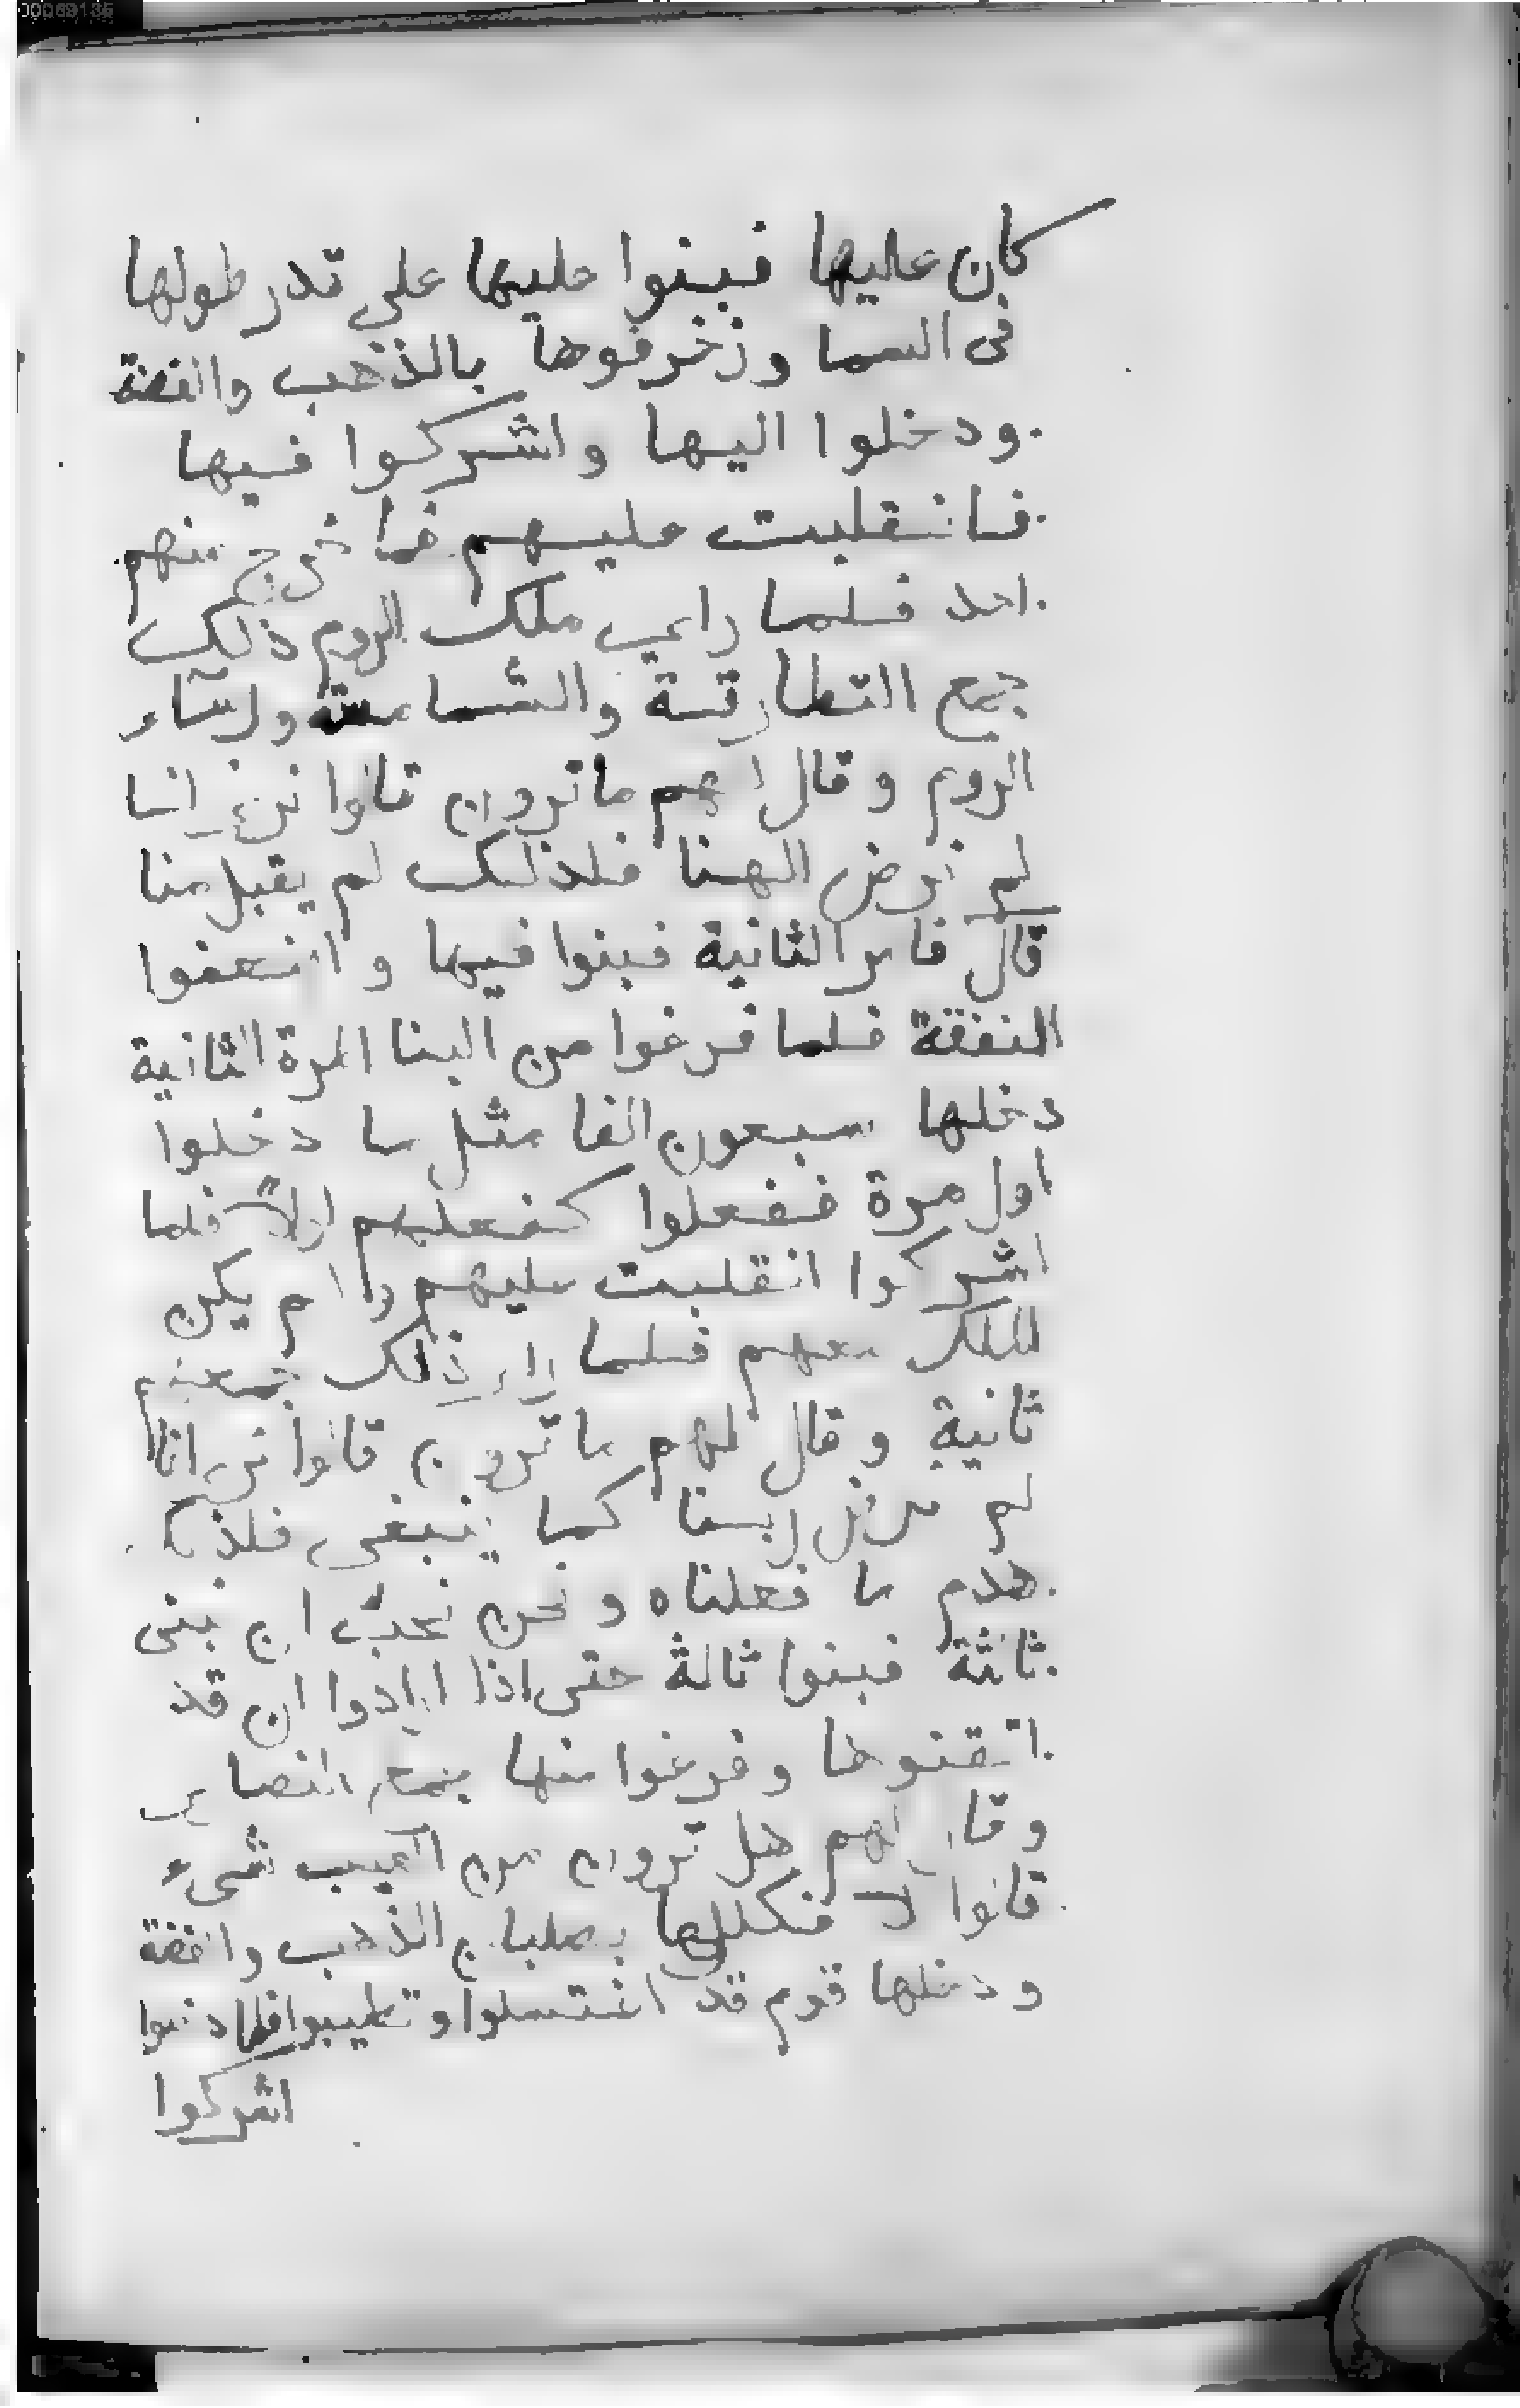 00069135
كان عليها فبنوا عليها على قدر طولها
في السما وزخرفوها بالذهب والفضة
ودخلوا اليها واشركوا فيها
فانقلبت عليهم فما خرج منهم
احد فلما راى ملك الروم ذلك
جمع البطارقة والشمامسة ورؤساء
الروم وقال لهم ما ترون قالوا نرى انا
لم نرض الهنا فلذلك لم يقبل منا
قال فامر الثانية فبنوا فيها واضعفوا
النفقة فلما فرغوا من البنا المرة الثانية
دخلها سبعون الفا مثل ما دخلوا
اول مرة ففعلوا كفعلهم اولا فلما
اشركوا انقلبت عليهم ولم يكن
الملك معهم فلما راى ذلك جمعهم
ثانية وقال لهم ما ترون قالوا نرى انا
لم نرض ربنا كما ينبغى فلذلك
هدم ما فعلناه ونحن نحب ان نبنى
ثالثة فبنوا ثالثة حتى اذا ارادوا ان قد
اتقنوها وفرغوا منها جمع النصارى
وقال لهم هل ترون من العيب شىء
قالوا لا فكللها بصلبان الذهب والفضة
ودخلها قوم قد اغتسلوا وتطيبوا فلما دخلوا
اشركوا